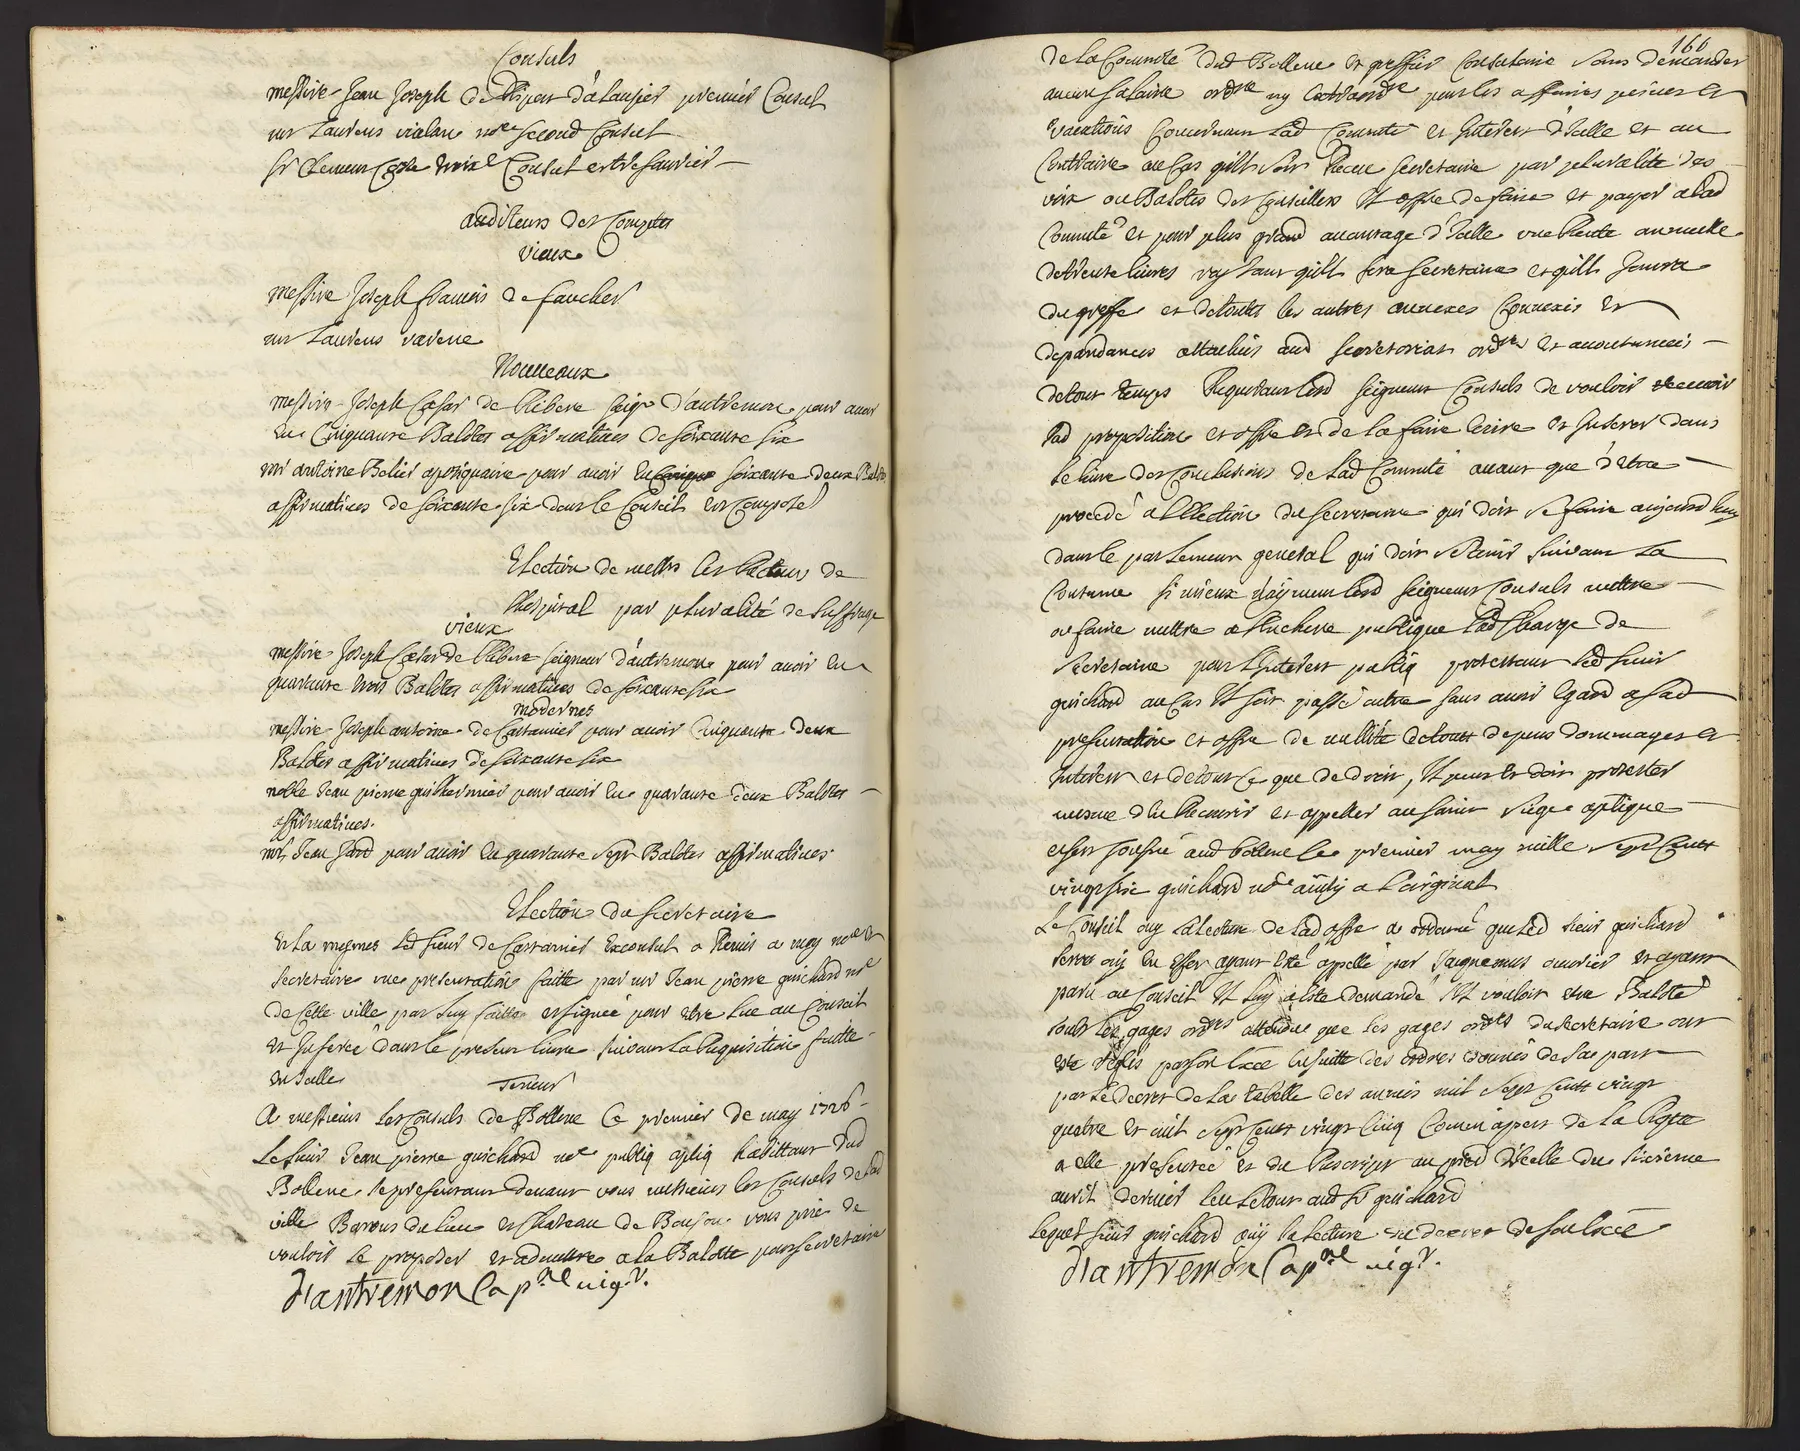 Consuls
messire Jean Joseph de Ripert d'alausier premier Consul
mr Laurens vialan nore second Consul
sr Clemens Coste troise Consul et tresaurier
auditeurs des Comptes
vieux
messire Joseph francois de faucher
mr Laurens varene
Nouveaux
messire Joseph Cæsar de Ribere seigr d'antremon pour avoir
eu Cinquante Balotes affirmatives de soixante six
mr antoine Belier apotiquaire pour avoir eu soixante deux Balotes
affirmatives de soixante six dont le Conseil est Composé
Election de messrs les Recteurs de
l'hospital par pluralité de suffrage
vieux
messire Joseph Cæsar de Ribere seigneur d'antremon pour avoir eu
quarante trois Balotes affirmatives de soixante six
modernes
messire Joseph antoine de Castanier pour avoir Cinquante deux
Balotes affirmatives de soixante six
noble Jean pierre guilhermier pour avoir eu quarante deux Balotes
affirmatives.
mr Jean Jard pour avoir eu quarante sept Balotes affirmatives
Election du secretaire
Et la mesmes led sieur de Castanier Exconsul a Remis a moy nore et
secretaire une presentation faitte par mr Jean pierre guichard nre
de Cette ville par luy faitte et signée pour etre lue au Conseil
et Inserée dans le present livre suivant la Requisition faitte
en Icelle
Teneur
A messieurs les Consuls de Bollene Ce premier de may 1726
Le sieur Jean pierre guichard nore publiq aplig habittant dud
Bollene se presentant devant vous messieurs les Consuls de lad
ville Barons du lieu et Chateau de Bouson vous prie de
vouloir le proposer et admettre a la Balotte pour secretaire
d'antremon Capne uigr.
166
de la Commte dud Bollene et greffier Consulaire sans demander
aucun salaire ordre ny extraordre pour les affaires peines et
vacations Concernant lad Commte et Interest d'Icelle et au
Contraire au Cas qu'il soit Receu secretaire par pluralite des
voix ou Balotes des Conseillers Il offre de faire et payer a lad
Commté et pour plus grand avantage d'Icelle une Rente annuelle
de trente livres roy tant qu'il sera secretaire et qu'il Jouira
du greffe et de toutes les autres annexes Connexes et
dependances attachés aud secretariat ordre et accoutumées
de tout temps Requerant lesd seigneurs Consuls de vouloir recevoir
lad proposition et offre et de la faire Ecrire et Inserer dans
le livre des Conclusions de lad Commté avant que d'etre
procedé a l'Election du secretaire qui doit se faire aujourd'huy
dans le parlement general qui doit se tenir suivant la
Coutume si mieux n'ayment lesd seigneurs Consuls mettre
ou faire mettre a l'Enchere publique lad Charge de
secretaire pour l'Interest publiq protestant led sieur
guichard au Cas Il soit passé outre sans avoir Egard a lad
presentation et offre de nullité de tous depens dommages et
Interest et de tout Ce que de droit, Il peut et doit protester
mesme d'En Recourir et appeller au saint siege aplique
et sest soussné aud bollene le premier may mille sept Cent
vingt six guichard nore ainsy a l'original
Le Conseil ouy la lecture de lad offre a ordonné que led sieur guichard
seroit ouy En Effet ayant Eté appellé par Jaquemus ouvrier et ayant
paru au Conseil Il luy a Eté demandé s'il vouloit etre Baloté
soubs les gages ordres attendu que les gages ordres du secretaire ont
été reglés par son Exce Ensuitte des ordres donnés de sa part
par le decret de la tabelle des années mil sept Cent vingt
quatre et mil sept Cent vingt Cinq Comm'apert de la Reqte
a elle presentée et du Rescript au pied d'Icelle du sixieme
avril dernier leu le tout aud sr guichard
lequel sieur guichard ouy la lecture du decret de son Exce
d'antremon Capne uigr.